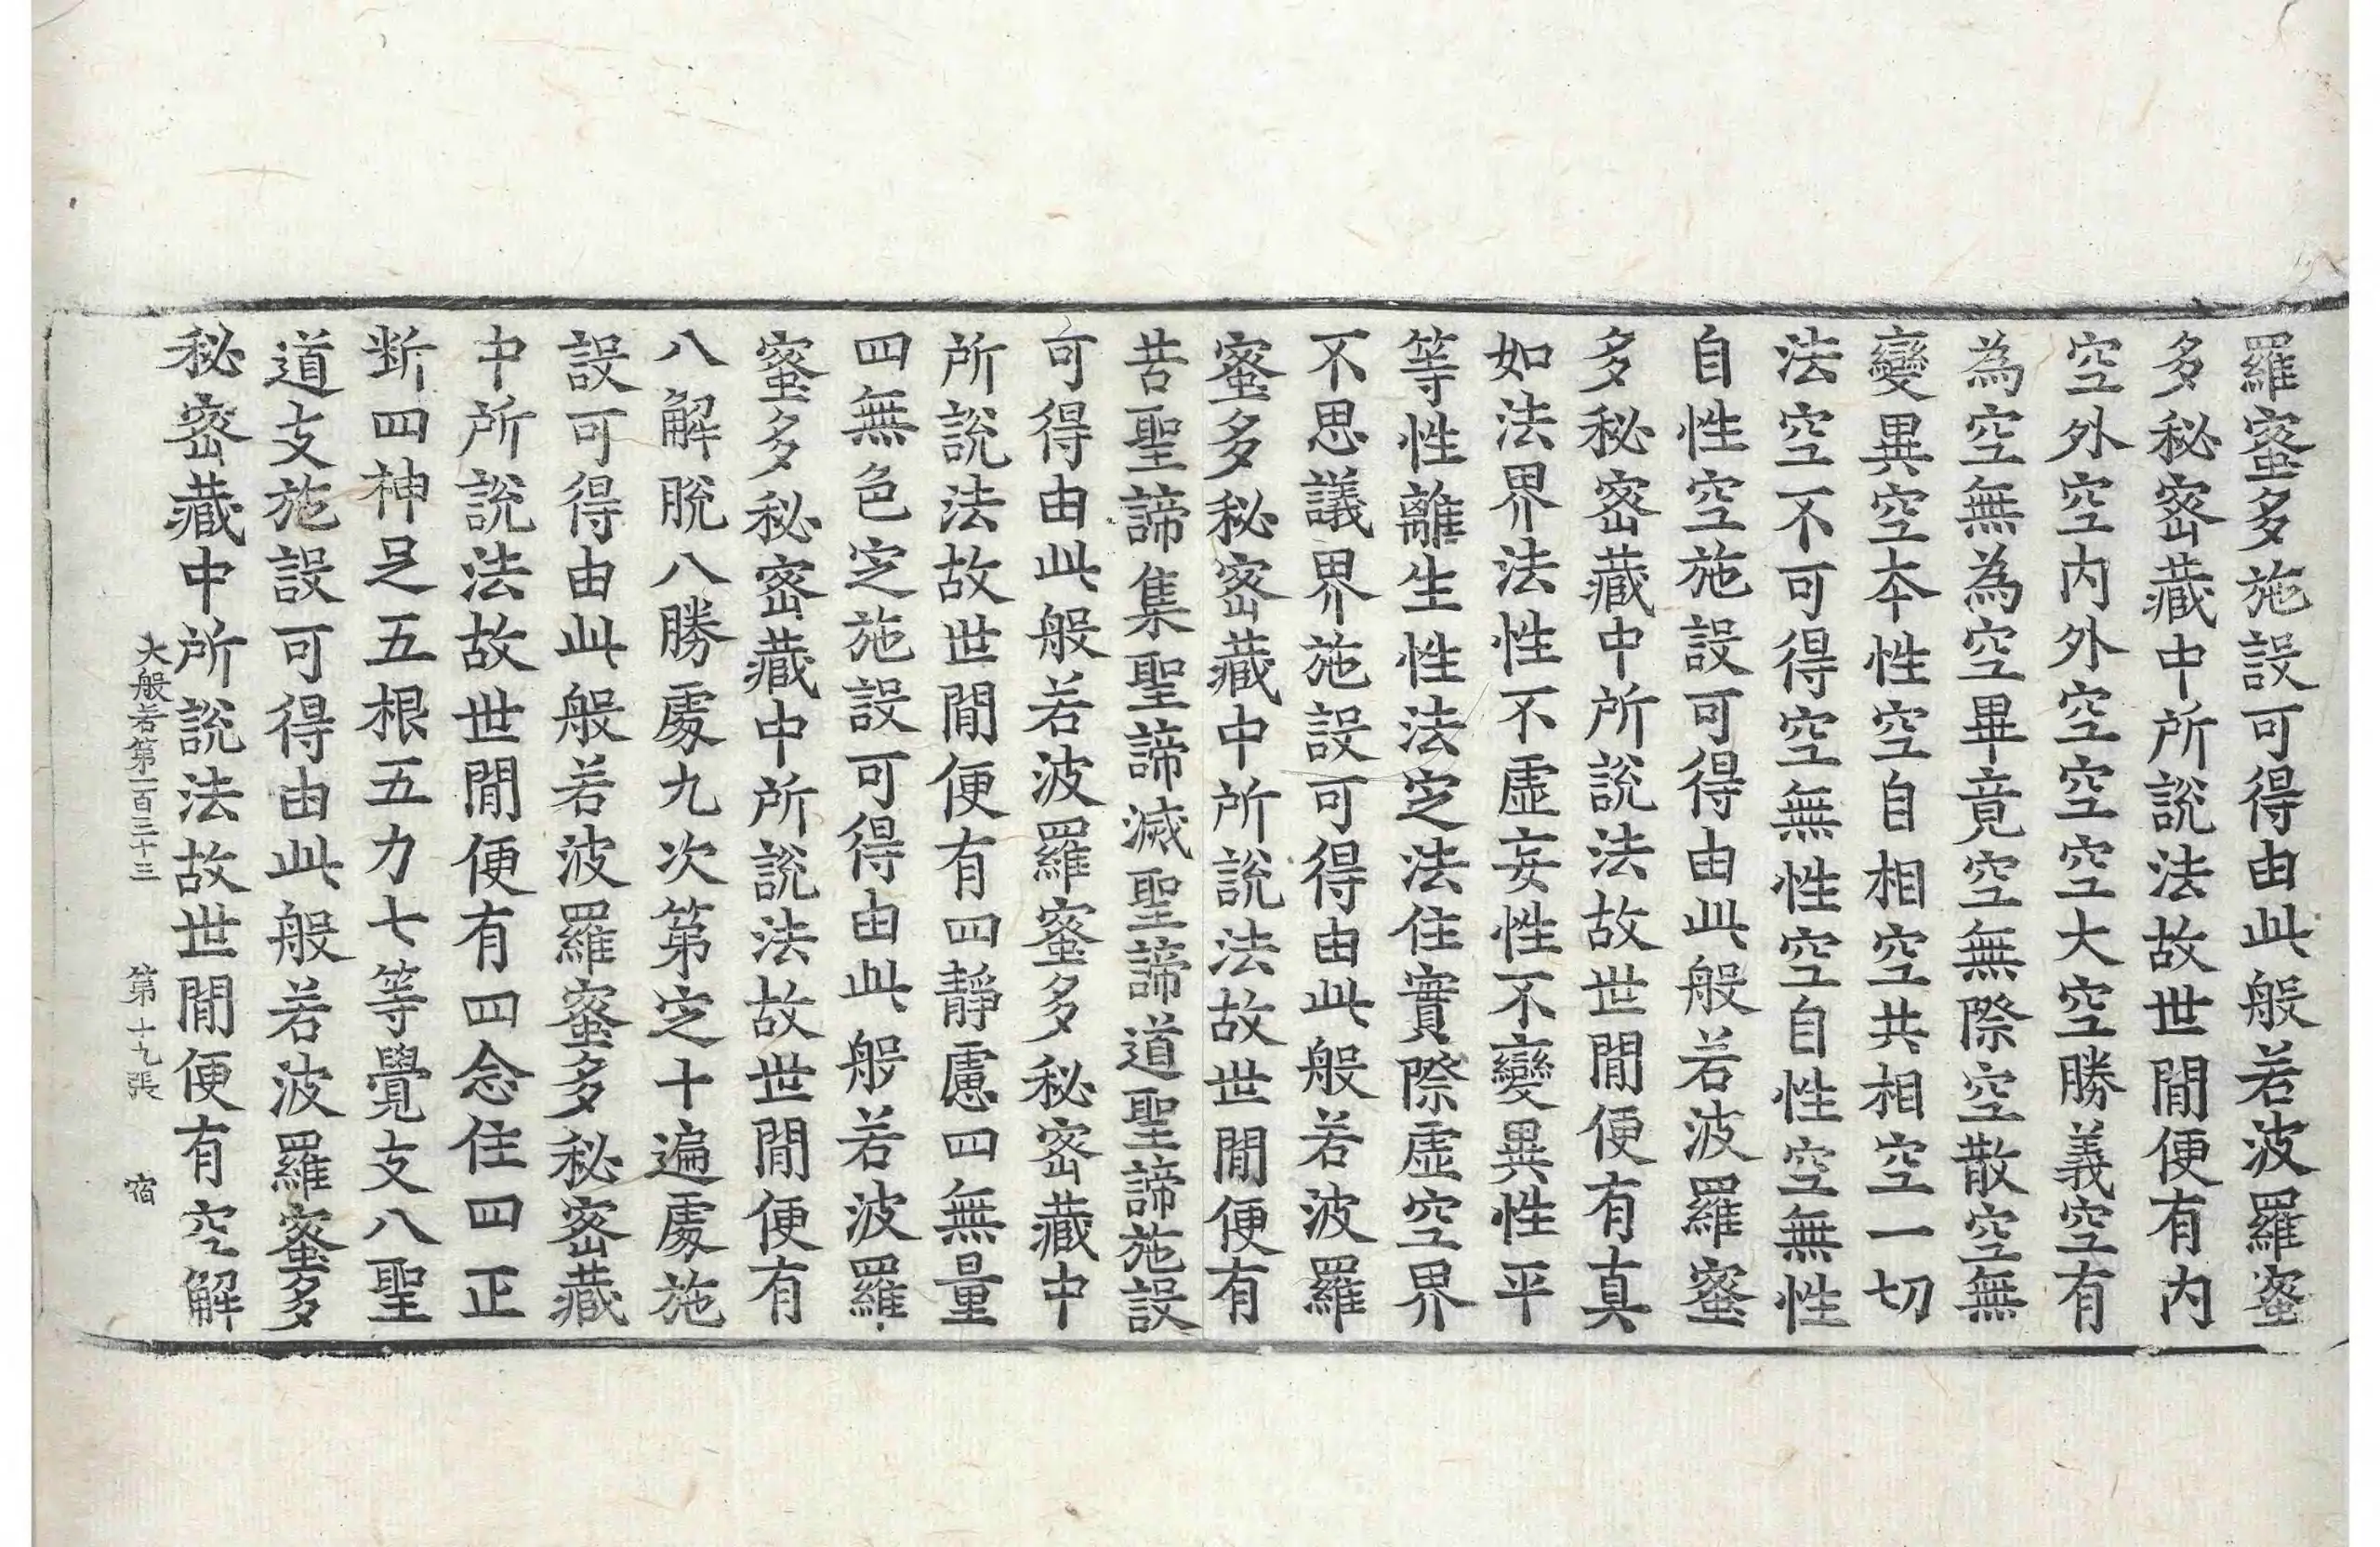 羅蜜多施設可得由此般若波羅蜜
多秘密藏中所說法故世間便有内
空外空内外空空空大空勝義空有
為空無為空畢竟空無際空散空無
變異空本性空自相空共相空一切
法空不可得空無性空自性空無性
自性空施設可得由此般若波羅蜜
多秘密藏中所說法故世間便有真
如法界法性不虛妄性不變異性平
等性離生性法定法住實際虛空界
不思議界施設可得由此般若波羅
蜜多秘密藏中所說法故世間便有
苦聖諦集聖諦滅聖諦道聖諦施設
可得由此般若波羅蜜多秘密藏中
所說法故世間便有四靜慮四無量
四無色定施設可得由此般若波羅
蜜多秘密藏中所說法故世間便有
八解脫八勝處九次第定十遍處施
設可得由此般若波羅蜜多秘密藏
中所說法故世間便有四念住四正
斷四神足五根五力七等覺支八聖
道支施設可得由此般若波羅蜜多
秘密藏中所說法故世間便有空解
大般若第一百三十三　第十九張　宿